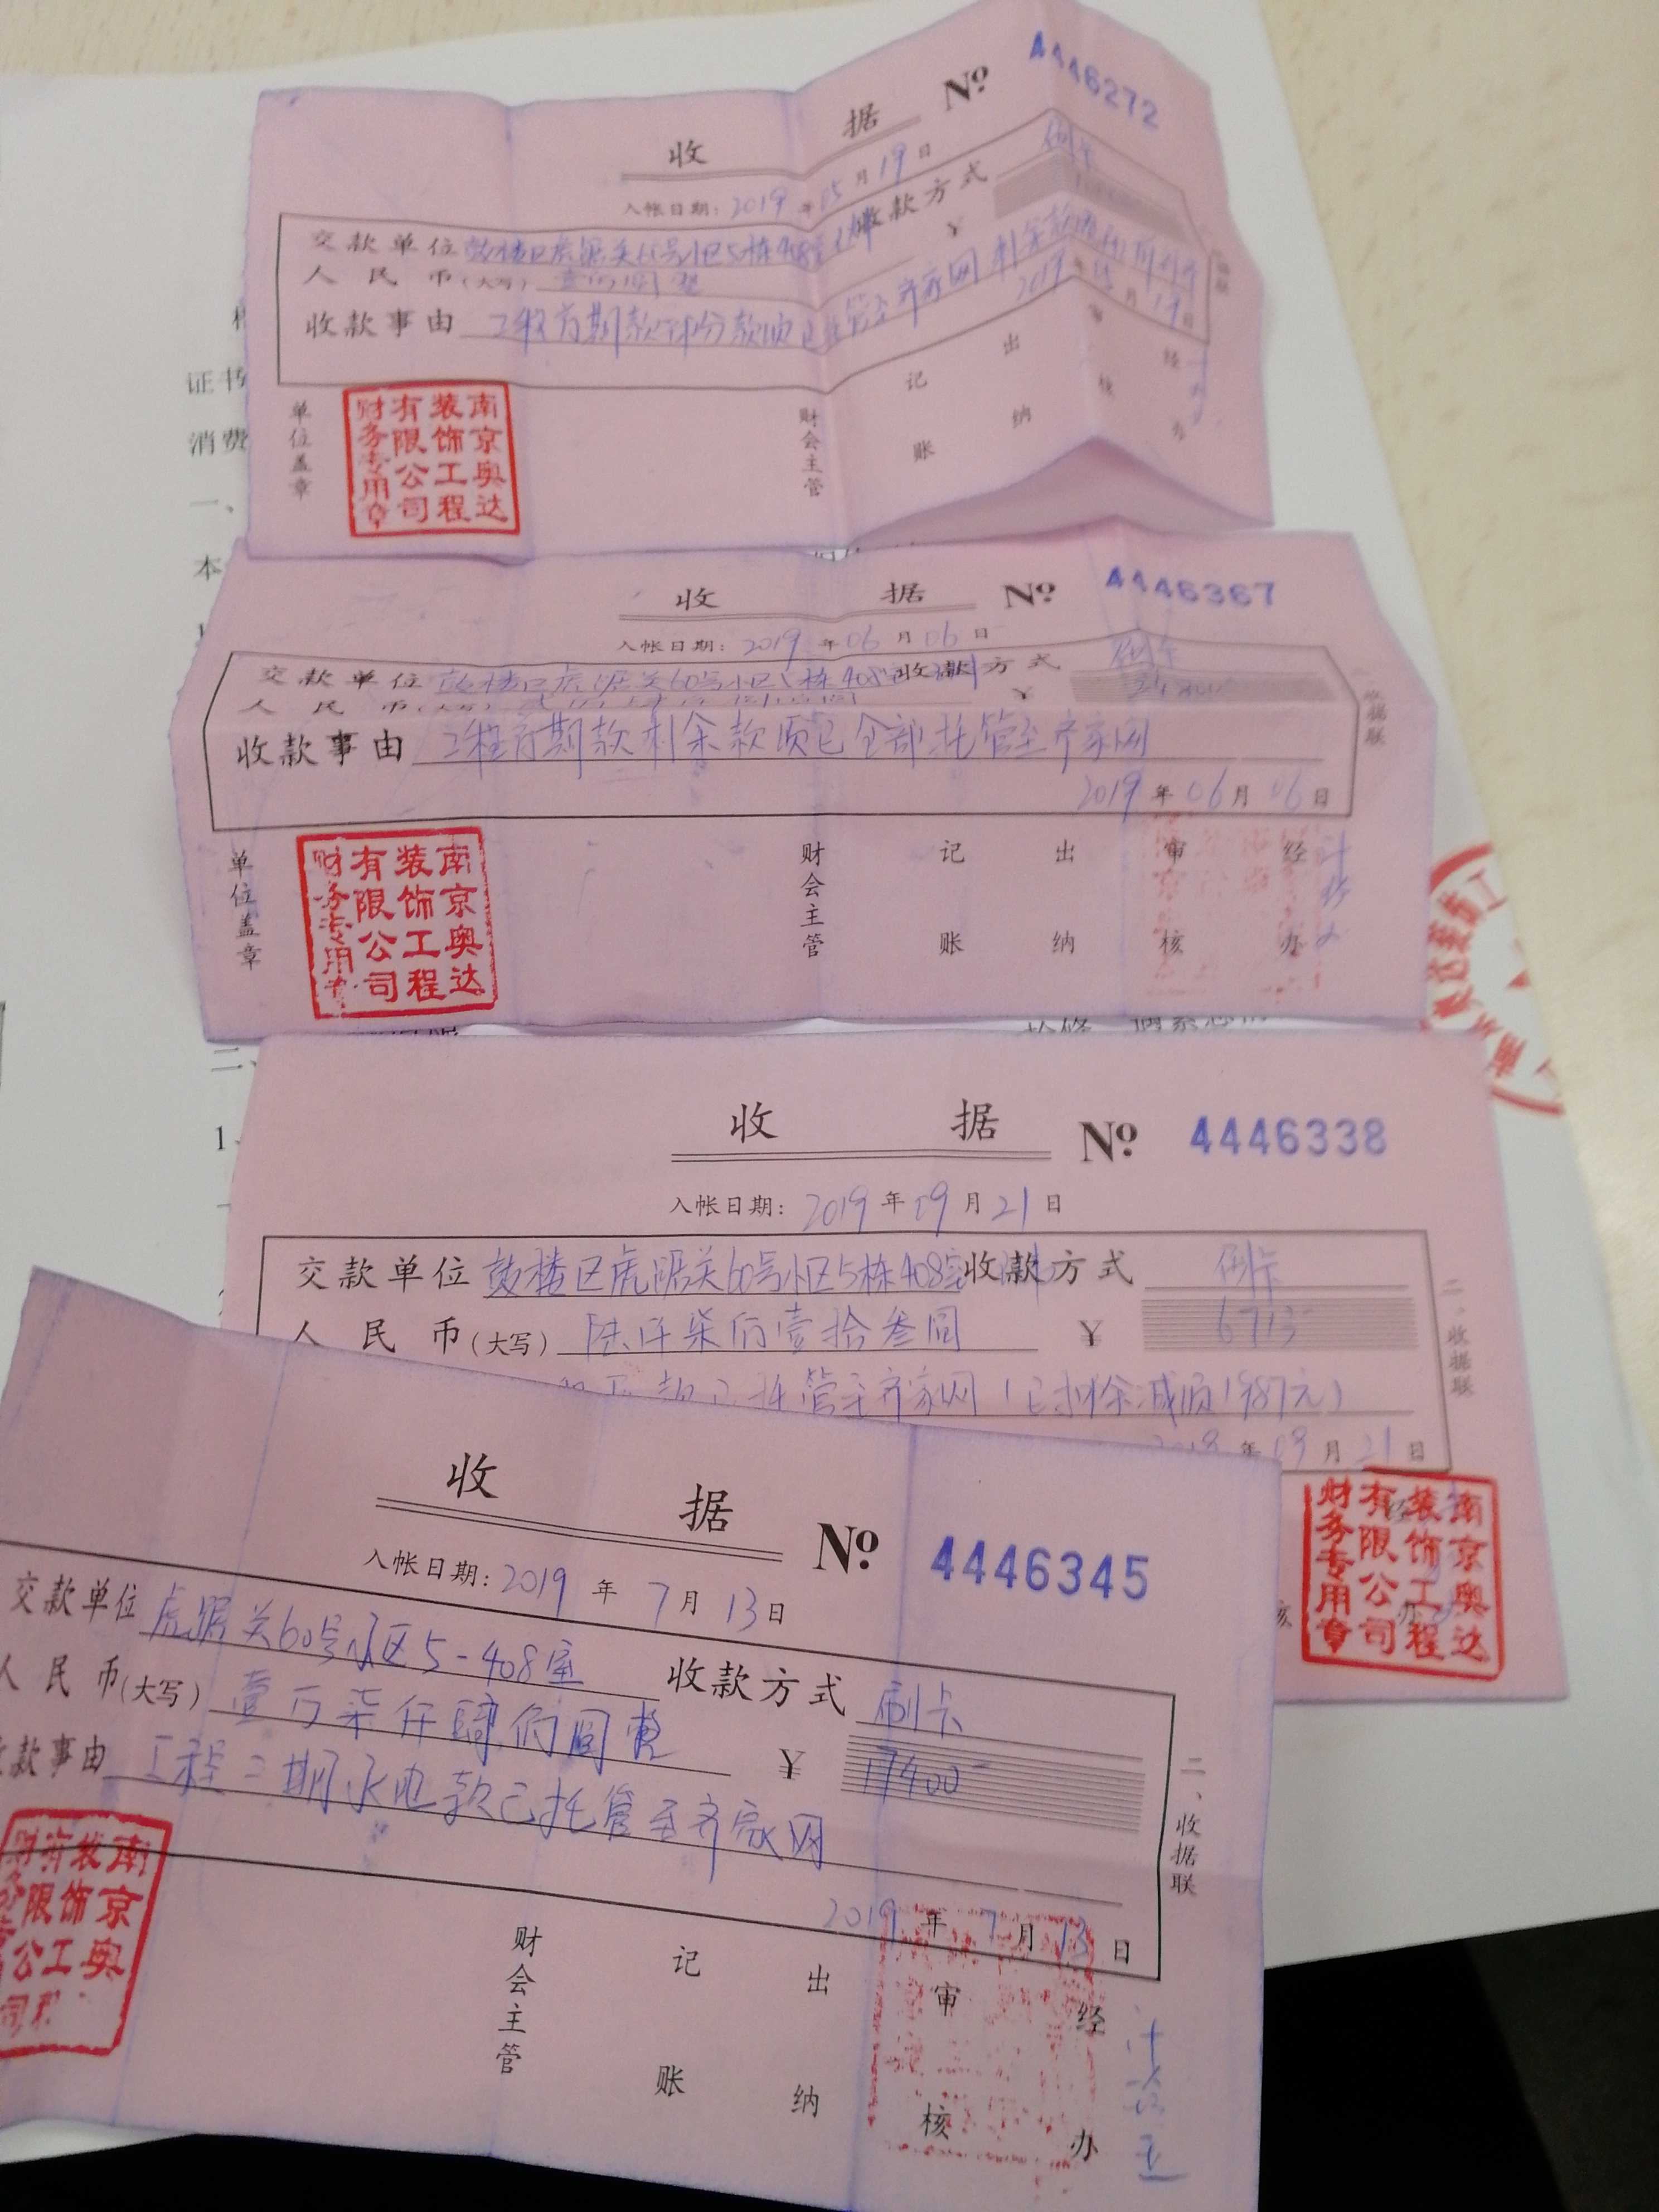 收 据 Nº 4446272
入帐日期: 2019 年 05 月 19 日
交款单位 鼓楼区虎踞关60号小区5栋408室 收款方式 刷卡
人民币(大写) ¥
收款事由 工程首期款部分款项已托管至齐家网 剩余款项
2019 年 05 月 19 日
单位盖章 财会主管 记账 出纳 审核 经办
南京奥达装饰工程有限公司财务专用章
证书
消费
一、
本
收 据 Nº 4446367
入帐日期: 2019 年 06 月 06 日
交款单位 鼓楼区虎踞关60号小区5栋408室 收款方式 刷卡
人民币(大写) ¥
收款事由 工程首期款剩余款项已全部托管至齐家网
2019 年 06 月 06 日
收据联
单位盖章 财会主管 记账 出纳 审核 经办
南京奥达装饰工程有限公司财务专用章
二、
1、
收 据 Nº 4446338
入帐日期: 2019 年 09 月 21 日
交款单位 鼓楼区虎踞关60号小区5栋408室 收款方式 刷卡
人民币(大写) 陆仟柒佰壹拾叁圆 ¥ 6713
款已托管至齐家网(已扣除减项1987元)
2019 年 09 月 21 日
二、收据联
南京奥达装饰工程有限公司财务专用章
收 据 Nº 4446345
入帐日期: 2019 年 7 月 13 日
交款单位 虎踞关60号小区5-408室 收款方式 刷卡
人民币(大写) 壹万柒仟肆佰圆整 ¥ 17400-
款事由 工程二期水电款已托管至齐家网
2019 年 7 月 13 日
二、收据联
财会主管 记账 出纳 审核 经办
南京奥达装饰工程有限公司